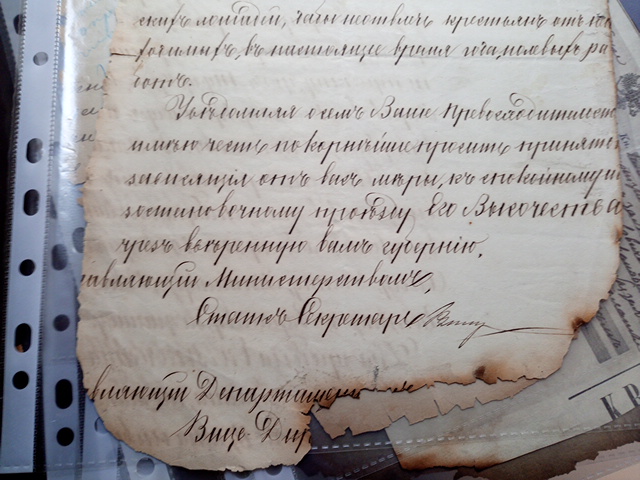 скихъ лошадей, дабы не отвлечь крестьянъ отъ
въ настоящее время года, полевыхъ ра
ботъ.
Увѣдомляя о семъ Ваше Превосходительст
имѣю честь покорнѣйше просить принять
зависящія отъ васъ мѣры, къ спокойному и
зостановочному проѣзду Его Высочества
чрезъ ввѣренную вамъ губернію.
авляющій Министерствомъ,
Статсъ Секретарь
вляющій Департамен
Вице-Дир
К